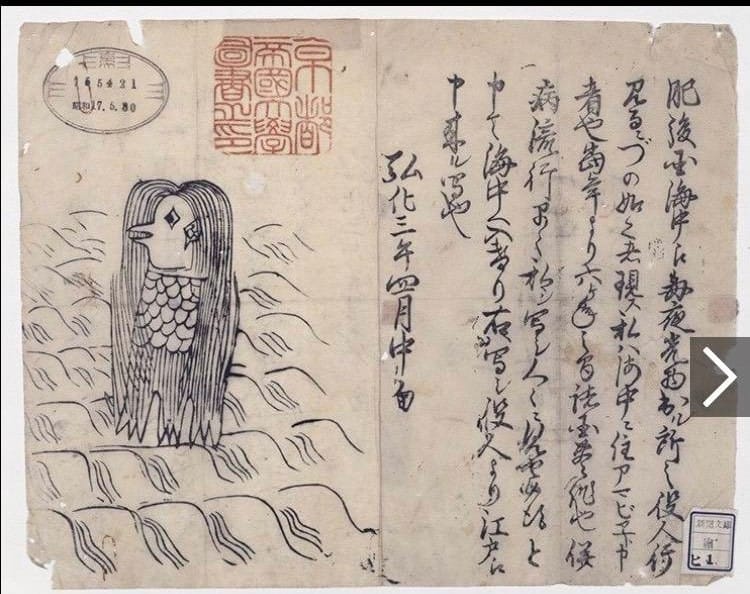 肥後国海中え毎夜光物出ル所之役人行
見るニづの如く者現ス私ハ海中ニ住アマビヱト申
者也当年より六ヶ年之間諸国豊作也併
病流行早々私シ写シ人々ニ見せ候得と
申て海中へ入けり右写シ役人より江戸え
申来ル写也
弘化三年四月中旬
京都
帝國大學
圖書之印
昭和17.5.30
新聞文庫
ヒ1